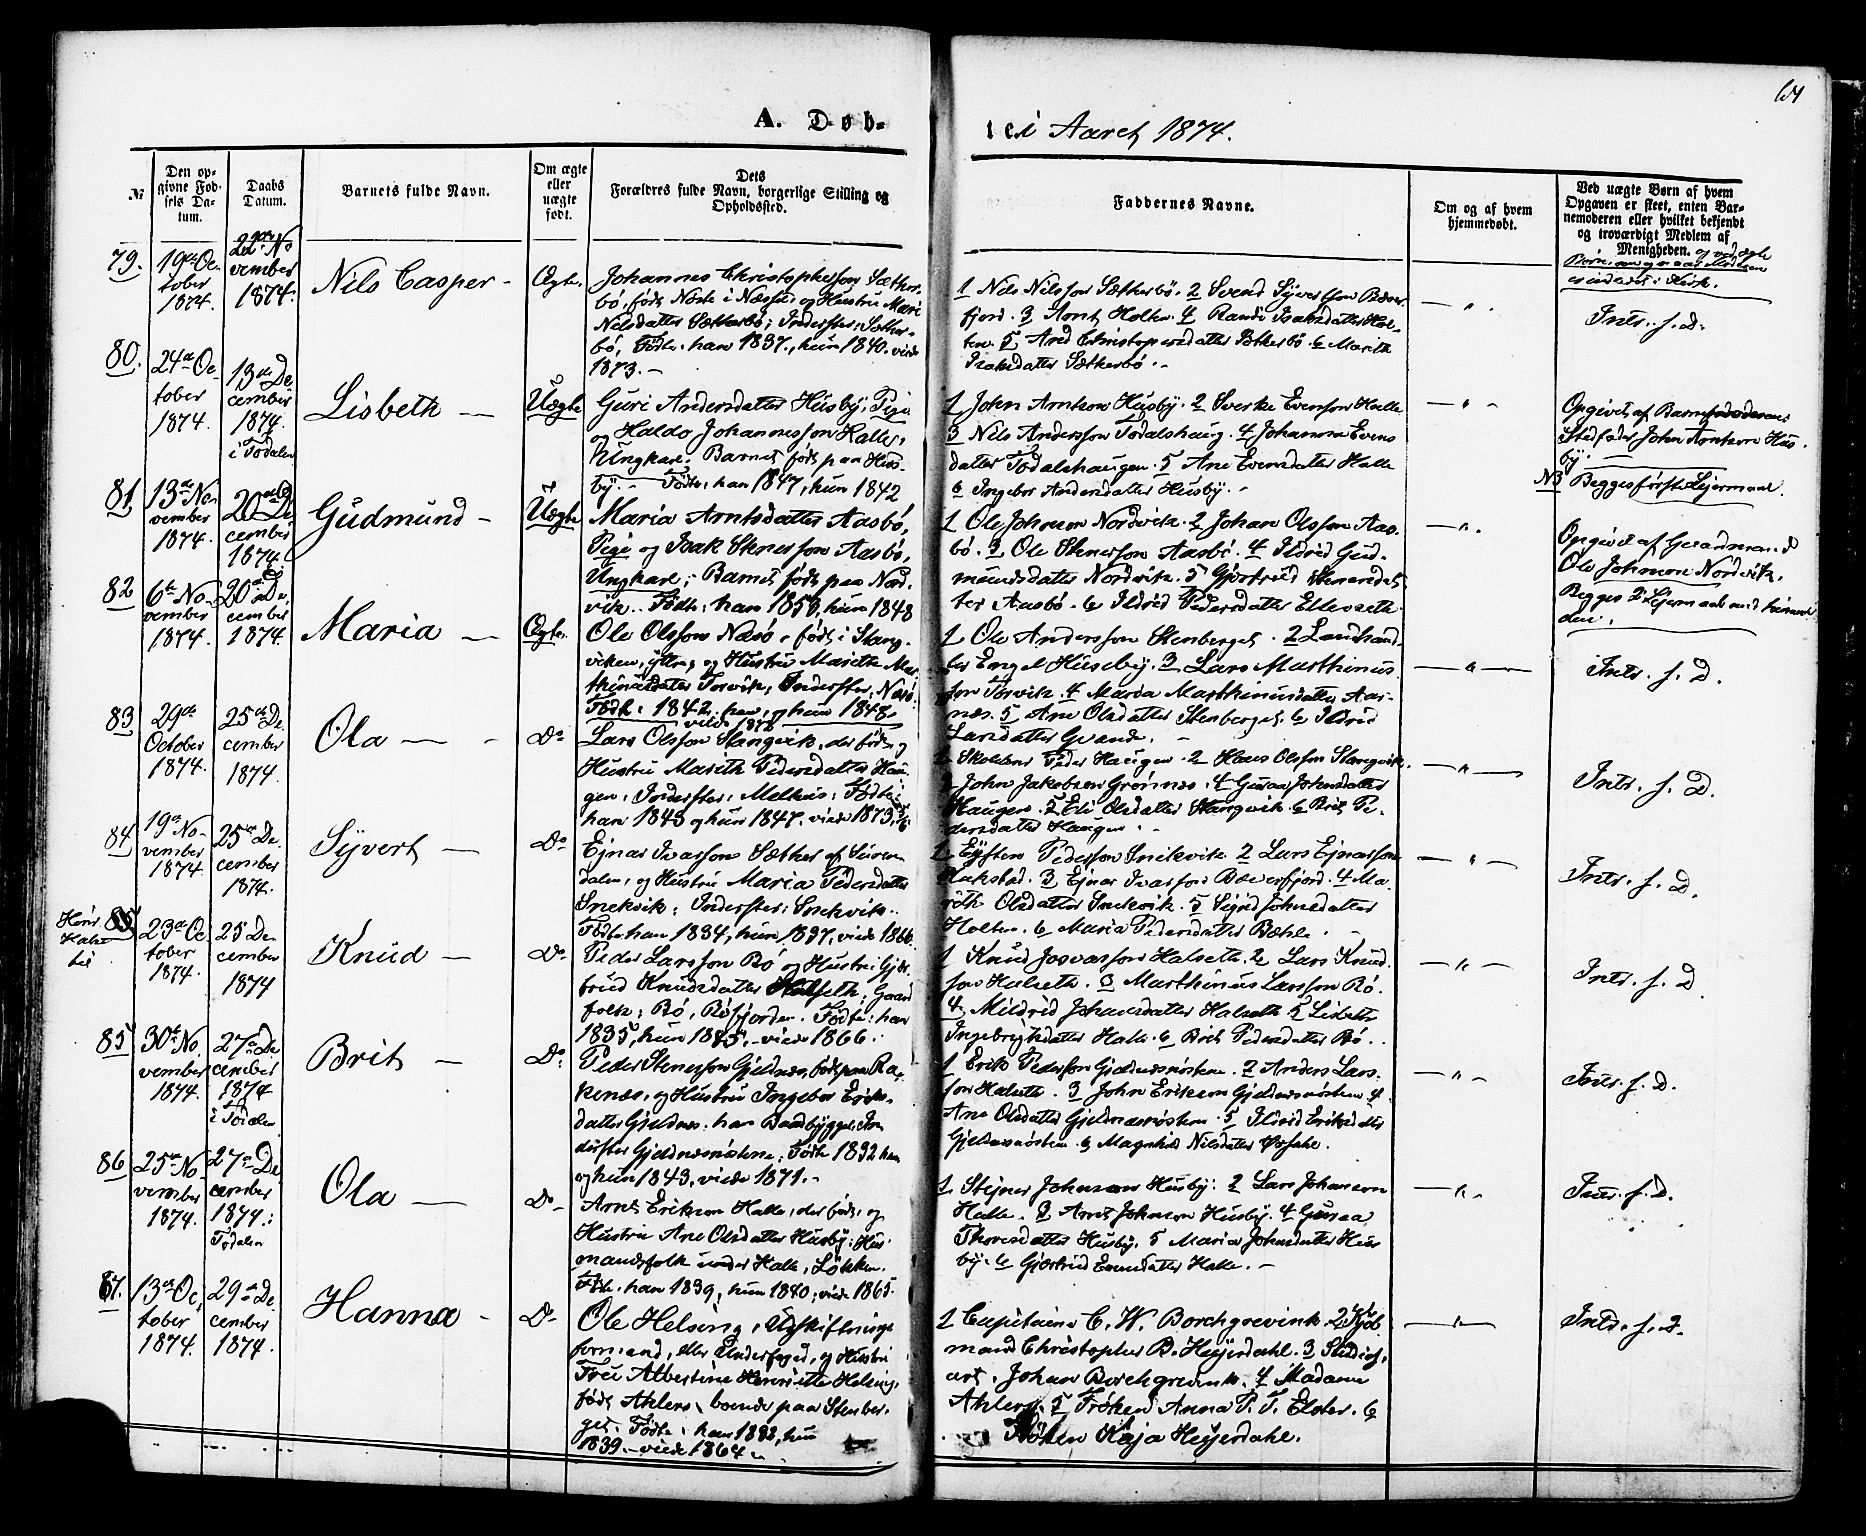 64
A. Døb-
te i Aaret 1874.
№
Den op-
givne Fød-
sels Da-
tum.
Daabs
Datum.
Barnets fulde Navn.
Om ægte
eller
uægte
født.
Dets
Forældres fulde Navn, borgerlige Stilling og
Opholdssted.
Faddernes Navne.
Om og af hvem
hjemmedøbt.
Ved uægte Børn af hvem
Opgaven er skeet, enten Bar-
nemoderen eller hvilket bekjendt
og troværdigt Medlem af
Menigheden.
79.
19de Oc-
tober
1874.
22de No
vember
1874.
Nils Casper -
Ægte.
Johannes Christophersson Sæther-
bø, født Neste i Næsset og Hustru Mari
Nilsdatter Sætherbø; Inderster, Sæther-
bø, Fødte: han 1837, hun 1840. viede
1873. -
1 Nils Nilsson Sætherbø. 2 Svend Syvertson Bæver-
fjord. 3 Arnt Holten. 4 Randi Isaksdatter Hol-
ten. 5 Ane Christophersdatter Sætherbø. 6 Marith
Isaksdatter Sætherbø. -
Intr. f. D.
80.
24de Oc
tober
1874.
13de De
cember
1874.
i Todalen
Lisbeth -
Uægte
Guri Andersdatter Husby, Pige
og Haldo Johannesson Halle,
Ungkarl. Barnet født paa Hus-
by. - Fødte: han 1847, hun 1842
1 John Arntson Husby. 2 Sverke Evenson Halle
3 Nils Andersson Todalshaug. 4 Johanna Evens
datter Todalshaugen. 5 Ane Evensdatter Halle
6 Ingebor Andersdatter Husby. -
Opgivet af Barnefaderens
Stedfader John Arntson Hus-
by.
NB Begges første Lejermaal.
81
13de No-
vember
1874.
20de De
cember
1874.
Gudmund -
Uægte
Maria Arntsdatter Aasbø,
Pige og Isak Stenersson Aasbø,
Ungkarl; Barnet født paa Nord-
vik. Fødte: han 1853, hun 1848
1 Ole Johnson Nordvik. 2 Johan Olsson Aas-
bø. 3 Ole Stenersson Aasbø. 4 Ildrid Gud-
mundsdatter Nordvik. 5 Gjertrud Stenersdat
ter Aasbø. 6 Ildrid Pedersdatter Ellevseth.
Opgivet af Gaardmand
Ole Johnson Nordvik.
Begges 2det Lejermaal med hinan-
den.
82
6te No-
vember
1874.
20de De.
cember
1874.
Maria -
Ægte.
Ole Olsson Næsø, født i Stang-
viken, ytterg. og Hustru Marith Mar-
thinusdatter Torvik; Inderster, Næsø.
Fødte: 1842 han, og hun 1848.
viede 1872
1 Ole Andersson Stenberget. 2 Landhand-
ler Engel Huseby. 3 Lars Marthinus
son Torvik. 4 Maria Marthinusdatter Aar-
næs. 5 Ane Olsdatter Stenberget. 6 Ildrid
Larsdatter Grande.
Intr. f. D.
83
29de
October
1874.
25de De.
cember
1874.
Ola -
Do
Lars Olsson Stangvik, der født, og
Hustru Marith Pedersdatter Hau-
gen; Inderster; Melhus; Fødte:
han 1843 og hun 1847. viede 1873.
1 Skolelærer Peder Haugen. 2 Hans Olsson Stangvik.
3 John Jakobsen Grønnes. 4 Guraa Johnsdatter
Haugen. 5 Eli Olsdatter Stangvik. 6 Brit Pe-
dersdatter Haugen.
Intr. f. D.
84
19de No-
vember
1874.
25de De.
cember
1874.
Syvert -
Do
Ejnar Ivarsson Sæther af Suren-
dalen, og Hustru Maria Pedersdatter
Snekvik; Inderster; Snekvik.
Fødte: han 1834, hun 1837, viede 1866.
1 Eysten Pedersson Snekvik 2 Lars Ejnarsson
Hakstad. 3 Ejnar Ivarson Bæverfjord. 4 Ma-
rith Olsdatter Snekvik. 5 Sigrid Johnsdatter
Holten. 6 Maria Pedersdatter Bæhle.
Intr. f. D.
85
23de Oc
tober
1874.
25 De-
cember
1874
Knud -
Do
Peder Larsson Bø og Hustru Gjer-
trud Knudsdatter Halseth; Gaard
folk; Bø, Bøfjorden. Fødte: han
1835, hun 1845. - viede 1866.
1 Knud Josvasson Halseth. 2 Lars Knud
son Halseth. 3 Marthinus Larsson Bø.
4 Mildrid Johansdatter Halseth 5 Lisbeth
Ingebrigtsdatter Halle. 6 Brit Pedersdatter Bø.
Intr. f. D
85
30te No
vember
1874.
27de De
cember
1874
i Todalen
Brit -
Do
Peder Stenersson Gjeldnes, født paa Ra-
kenæs, og Hustru Ingebor Eriks-
datter Gjeldnes. han Baadbygger, In
derster Gjeldnesmoen; Fødte 1832 han
og hun 1843. viede 1871. -
1 Erik Pedersson Gjeldnesmoen. 2 Anders Lars-
son Halseth. 3 John Eriksson Gjeldnesmoen 4
Ane Olsdatter Gjeldnesmoen. 5 Ildrid Eriksdatter
Gjeldnesmoen. 6 Magnhild Nilsdatter
Intr. f. D.
86
25de No
vember
1874.
27de De
cember
1874. i
Todalen
Ola -
Do
Arnt Erikson Halle, der født, og
Hustru Ane Olsdatter Husby; Hus-
mandsfolk under Halle, Løkken.
Fødte: han 1839, hun 1840; viede 1865.
1 Stejner Johnson Husby. 2 Lars Johanson
Halle. 3 Arnt Johnson Husby. 4 Guraa
Thoresdatter Husby, 5 Maria Johnsdatter Hus
by. 6 Gjertrud Evensdatter Halle. -
Intr. f. D.
87.
13de Oc
tober
1874.
29de De
cember
1874.
Hanna -
Do
Ole Helsing, Udskiftnings
formand, eller Underfoged, og Hustru
Frue Albertine Henriette Helsing,
født Ahlers, boende paa Stenber-
get. Fødte: han 1832, hun
1839. - viede 1864.
1 Capitaine C. W. Borchgrevink 2 Kjøb-
mand Christopher B. Heyerdahl. 3 Studios,
art. Johan Borchgrevink. 4 Madame
Ahlers. 5 Frøken Anna P. T. Elster. 6
Frøken Kaja Heyerdahl.
Intr. f. D.